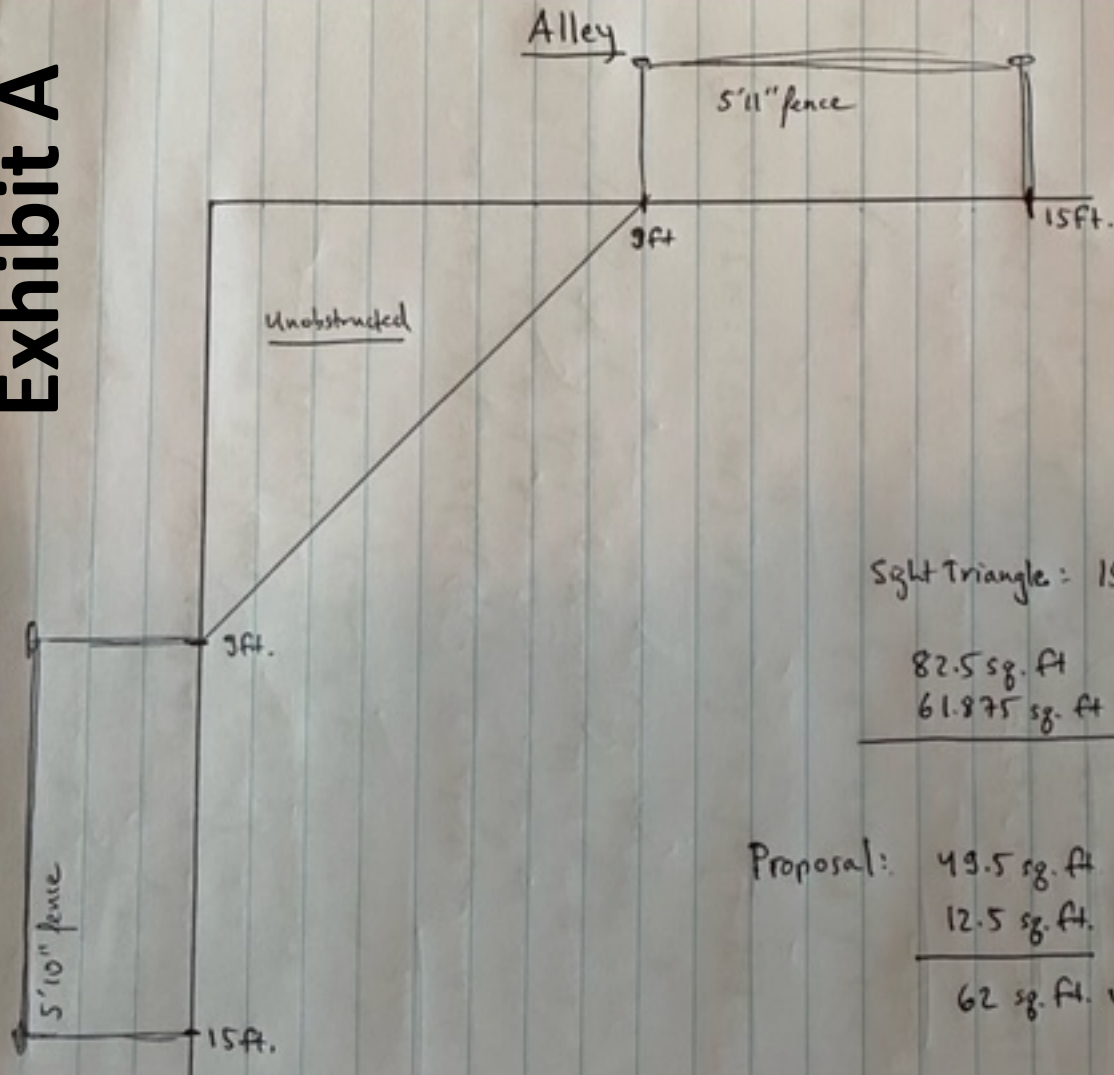 Exhibit A
Alley
5'11" fence
9ft
15ft.
Unobstructed
Sght Triangle: 15
9ft.
82.5 sq. ft
61.875 sq. ft
Proposal: 49.5 sq. ft
12.5 sq. ft.
62 sq. ft.
5'10" fence
15ft.